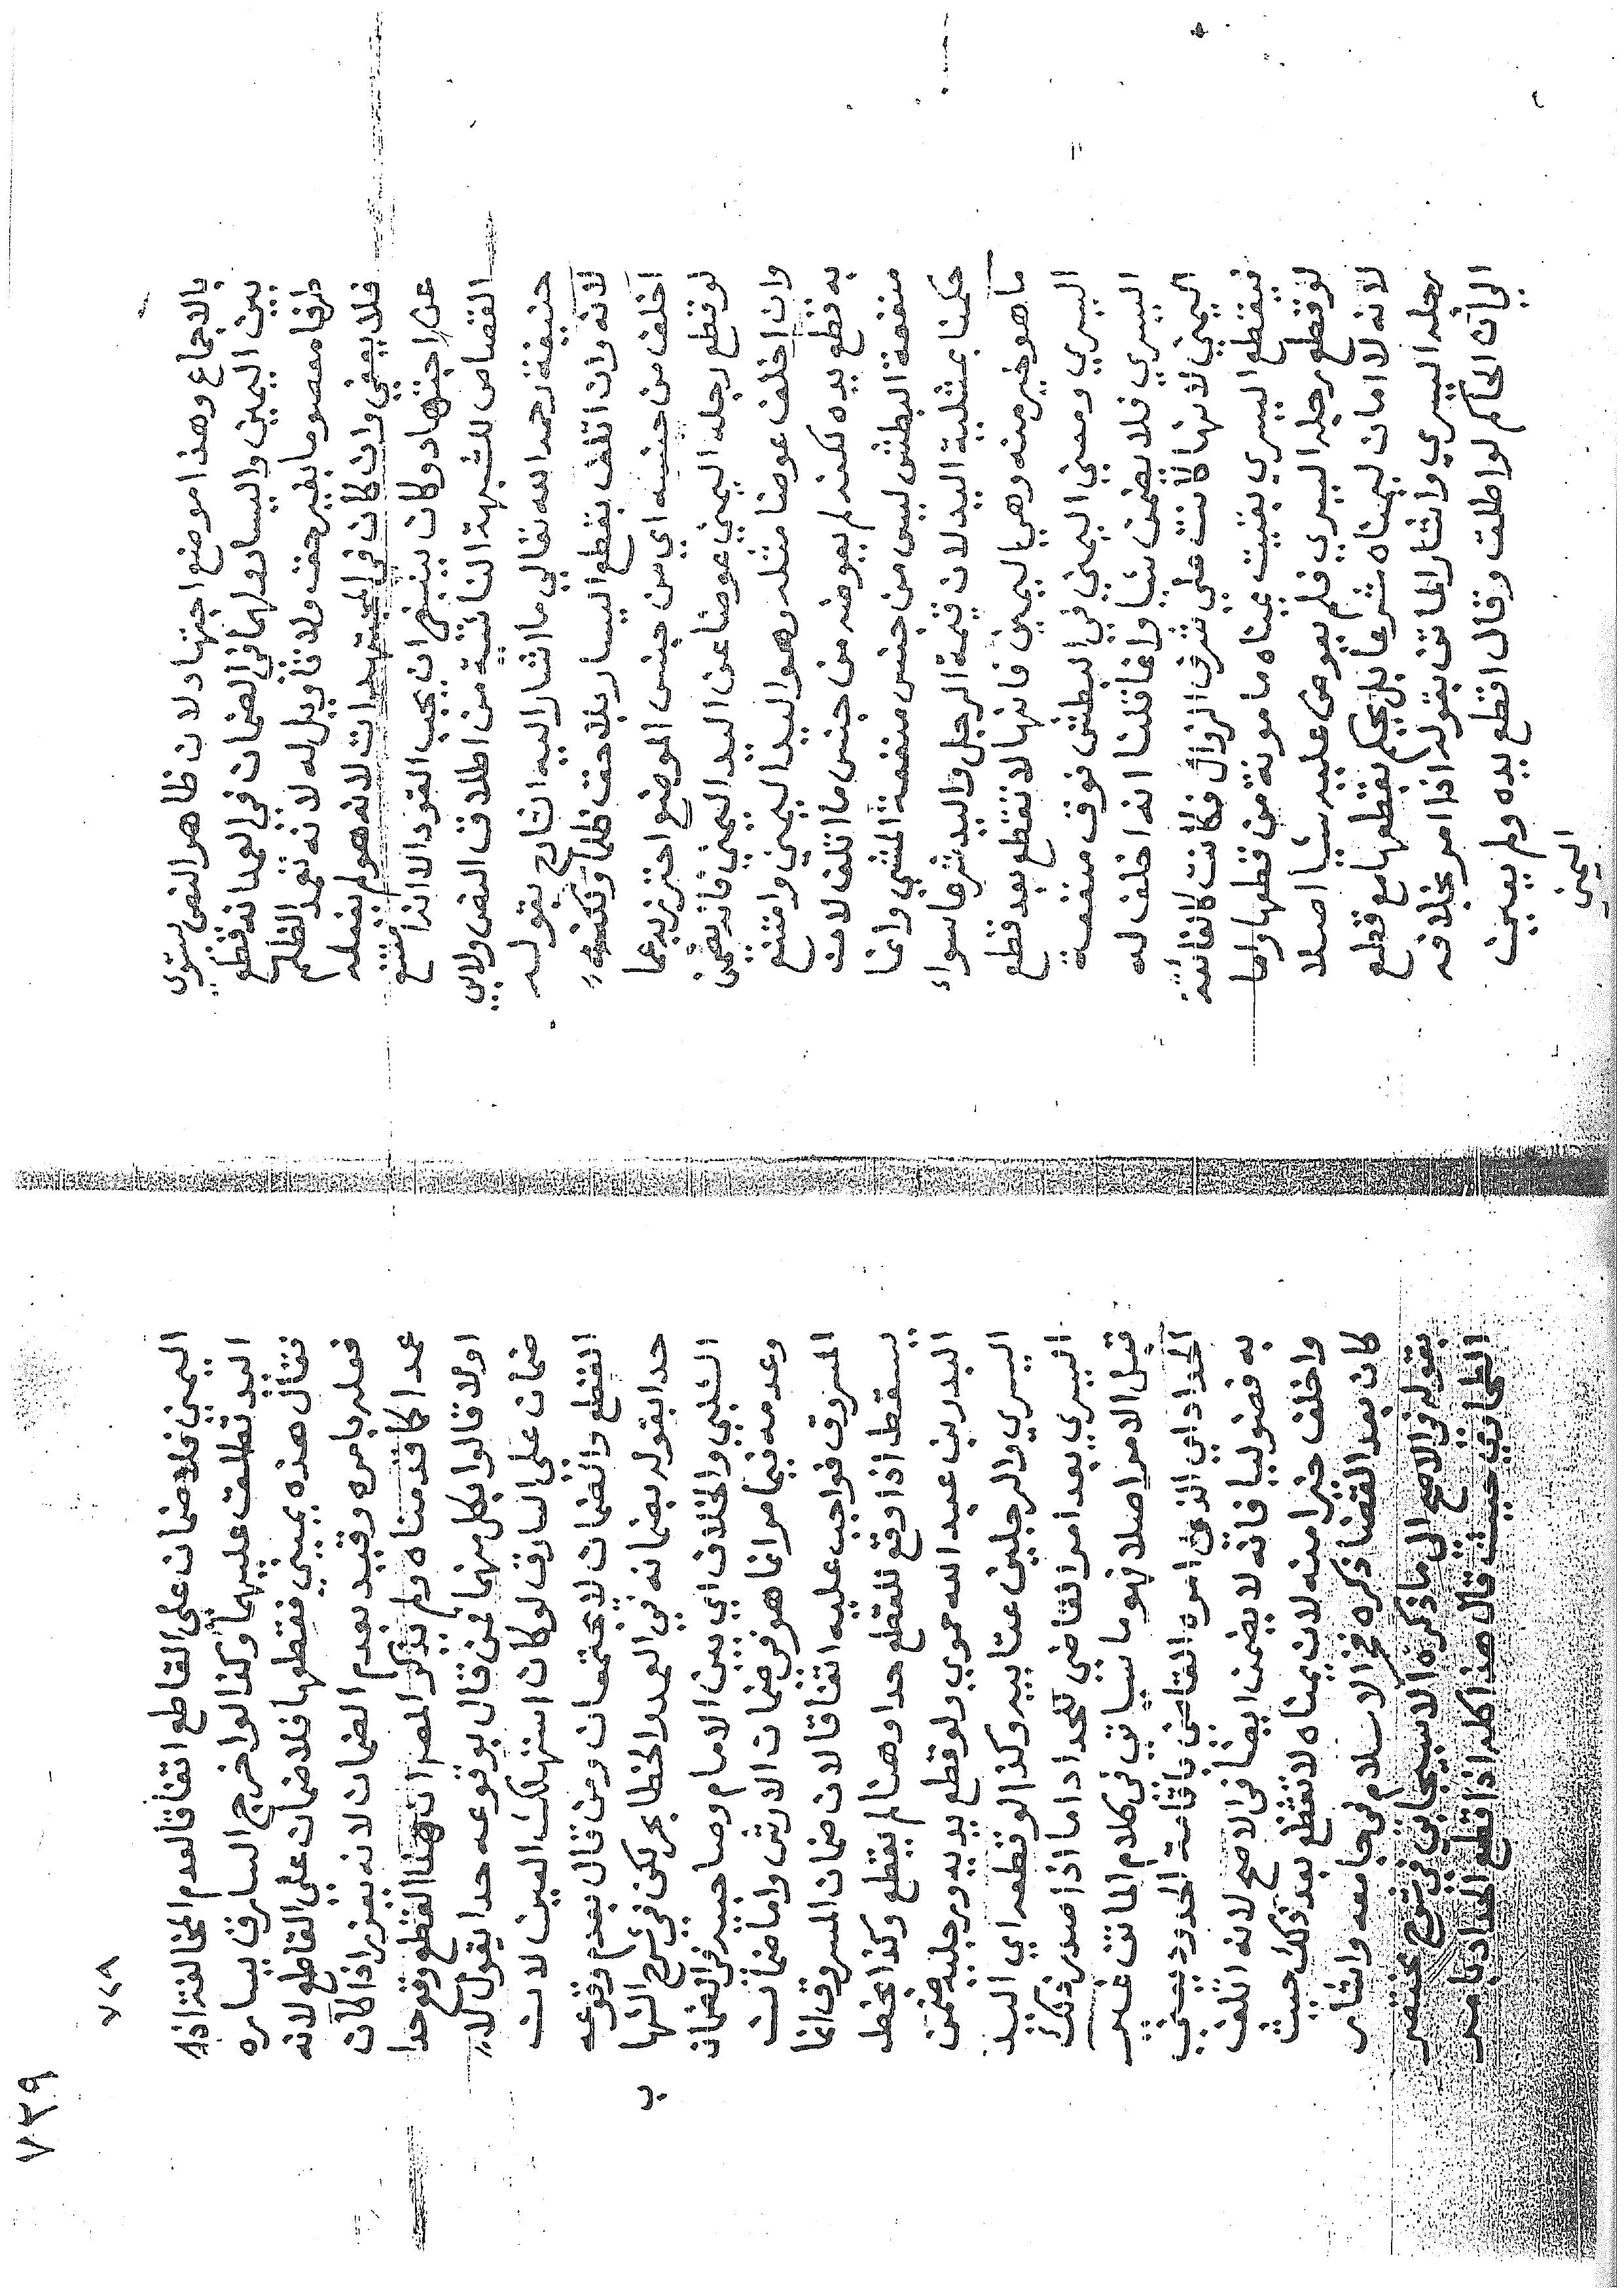 بالاجماع وهذا موضع اجتهاد لان ظاهر النص يستوى
بين اليمين واليسار ولهما في الضمان في العمد انه قطع
طرفا معصوما بغير حق ولا تأويل له لانه تعمد الظلم
فلا يعفى وان كان في المجتهدات لانه هو لم يفعله
عن اجتهاد وكان ينبغي ان يجب القود الا انه امتنع
القصاص للشبهة الناشئة من اطلاق النص ولابي
حنيفة رحمه الله تعالي ما اشار اليه الشارح بقوله
لانه وان اتلف بقطع اليسار بلا حق ظلما ولكنه
اخلف من جنسه اي من جنس الموضع احترز به عما
لو قطع رجله اليمني عوضا عن اليد اليمني فانه يضمن
وان اخلف عوضا مثله وهو اليد اليمني وامتنع
به قطع يده لكنه لم يعوضه من جنس ما اتلف لان
منفعة البطش ليس من جنس منفعة المشي وانما
حكمنا بمثلية اليد لان قيمة الرجل واليد شرعا سواء
ما هو خير منه وهي اليمين فانها لا تقطع بعد قطع
اليسري ومعني اليمني في البطش فوق منفعة
اليسري فلا يضمن شيا وانما قلنا انه اخلف له
اليمني لانها كانت علي شرف الزوال فكانت كالفائتة
فبقطع اليسري بقيت يمناه مامونة من قطعها واما
لو قطع رجله اليسري فلم يعوض عليه شيا اصلا
لانه لا امان ليمناه شرعا بل يحكم بقطعها مع قطع
رجله اليسري واشار الماتن بقوله اذا امر بخلافه
الي ان الحاكم لو اطلق وقال اقطع يده ولم يعين
اليمني
٧٣٩
٧٢٩
اليمني فلا ضمان علي القاطع اتفاقا لعدم المخالفة اذ
اليد تطلق عليهما وكذا لو اخرج السارق يساره
فقال هذه يميني فقطعها فلا ضمان علي القاطع لانه
فعله بامره وقيد بعدم الضمان لانه يعزر اذا كان
عمدا كما قدمناه ولم يذكر المصر ان هذا القطع وقع حدا
اولا قالوا بكل منهما فمن قال بوقوعه حدا يقول لا
ضمان علي السارق لو كان استهلك العين لان
القطع والضمان لا يجتمعان ومن قال بعدم وقوعه
حدا يقول بضمانه في العمد والخطا بحر لكن في شرح الشها
ب
الشلبي والخلاف اي بين الامام وصاحبيه في الضمان
وعدمه فيما مر انما هو في ضمان الارش واما ضمان
المسروق فواجب عليه اتفاقا لان ضمان المسروق انما
يسقط اذا وقع للقطع حدا وهنا لم يقطع وكذا بخط
البدر بن عبد الله حموي ولو قطع يديه ورجليه ضمن
اليسري والرجلين عتابيه وكذا لو قطعه اي اليد
اليسري بعد امر القاضي للحداد اما اذا صدر ذلك
قبل الامر اصلا فهو ما سياتي في كلام الماتن غير
الحداد اي الذي امره القاضي باقامة الحدود يعني
به فضوليا فانه لا يضمن ايضا في الاصح لانه اتلف
واخلف خيرا منه لان يمناه لا تقطع بعد ذلك حيث
كان بعد القضا ذكره فخر الاسلام في جامعه واشار
بقوله في الاصح الي ما ذكره الاسبيجابي في شرح مختصر
الطحاوي حيث قال هذا كله اذا قطع الحداد بامر